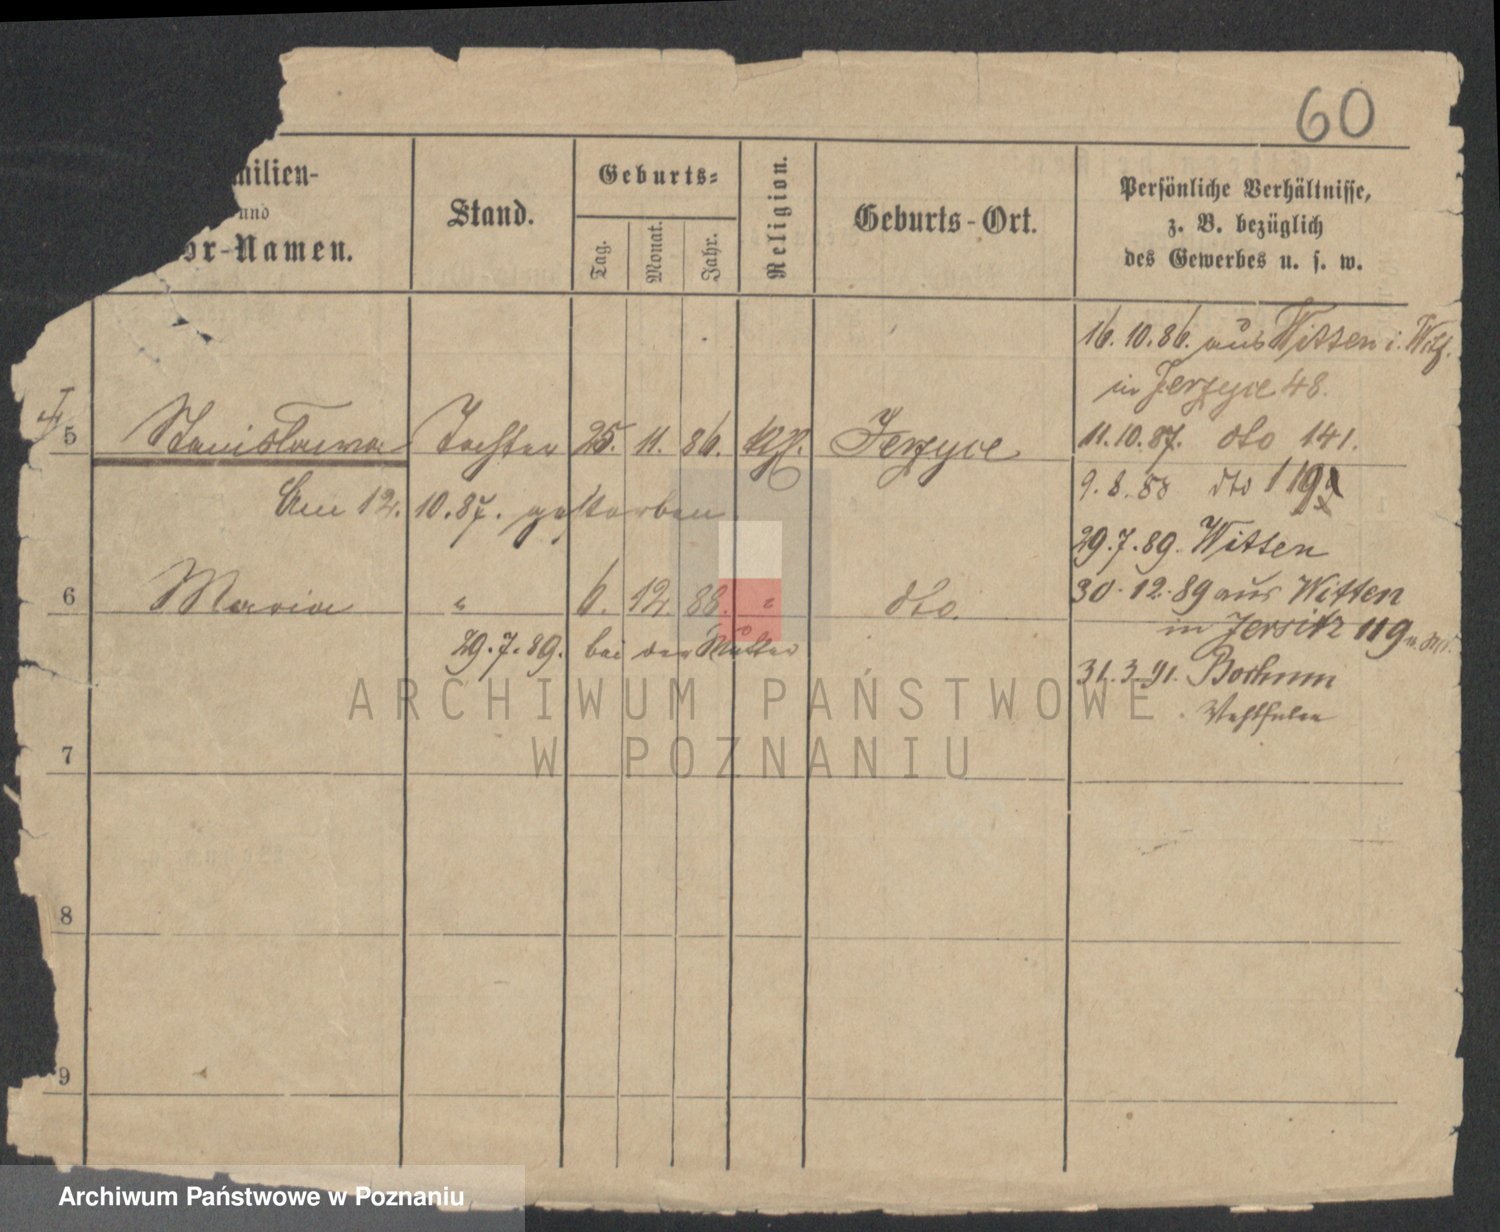 60
milien-
und
or-Namen.
Stand.
Geburts-
Tag.
Monat.
Jahr.
Religion.
Geburts-Ort.
Persönliche Verhältnisse,
z. B. bezüglich
des Gewerbes u. s. w.
16.10.86. aus Witten i. Wstf.
in Jerzyce 48.
5 Stanislawa Tochter 25. 11. 86. kth. Jerzyce
11.10.87. dto 141.
Am 12. 10.87. gestorben
9.8.88 dto 119
29.7.89. Witten
6 Maria " 6. 12. 88. " dto.
30.12.89 aus Witten
in Jersitz 119
29.7.89. bei der Mutter
31.3.91. Bochum
Westfalen
7
8
9
ARCHIWUM PAŃSTWOWE
W POZNANIU
Archiwum Państwowe w Poznaniu